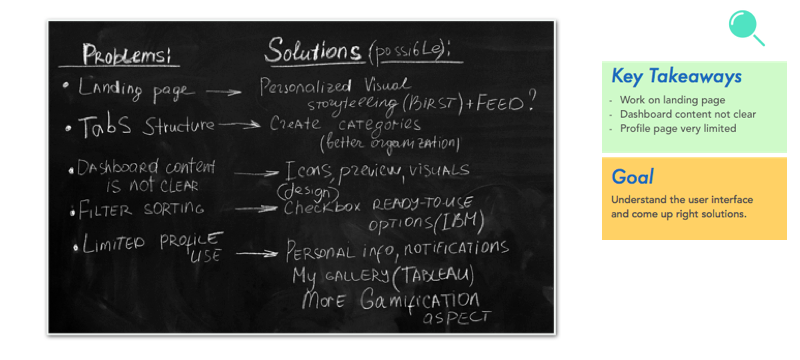 Problems:
Solutions (possible):
• Landing page → Personalized Visual
storytelling (BIRST) + FEED?
• Tabs Structure → Create categories
(better organization)
• Dashboard content → Icons, preview, visuals
is not clear
(design)
• Filter sorting → Checkbox ready-to-use
options (IBM)
• Limited profile
use → Personal info, notifications
My gallery (Tableau)
More Gamification
aspect
Key Takeaways
- Work on landing page
- Dashboard content not clear
- Profile page very limited
Goal
Understand the user interface
and come up right solutions.